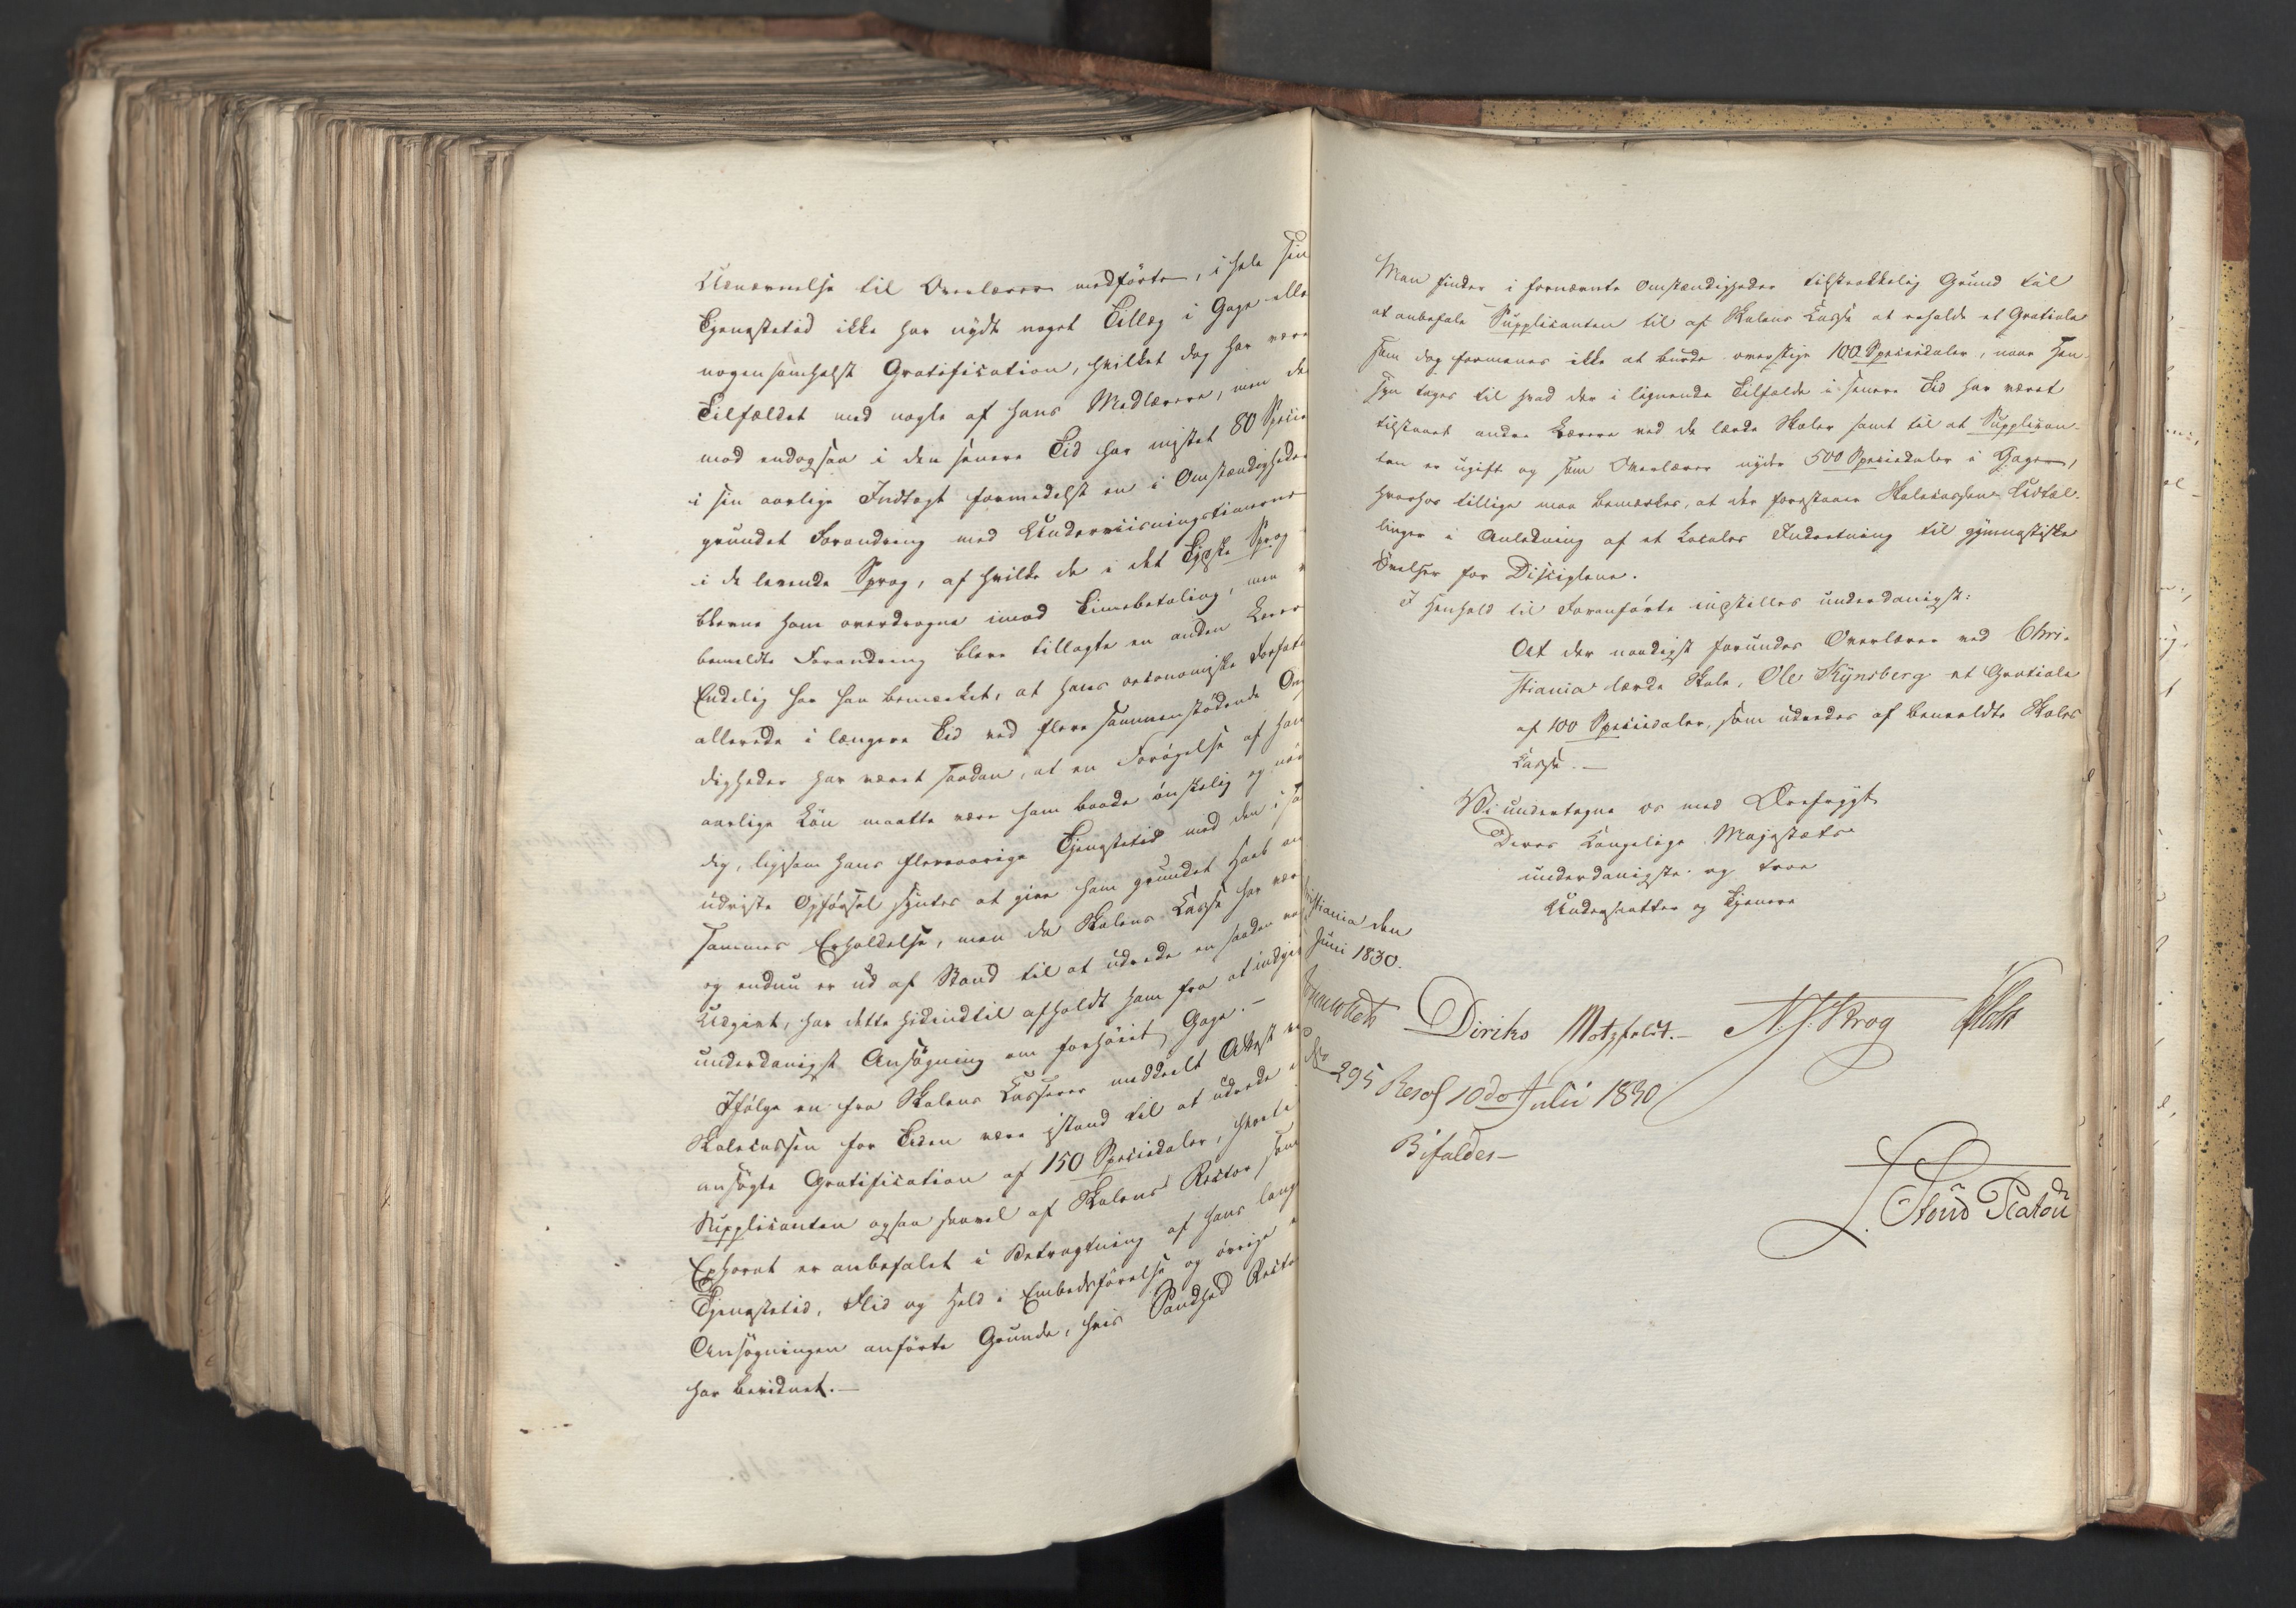 Udnævnelse til Overlærer medførte, i hele sin
Tjenestetid ikke har nydt noget Tillæg i Gage elle
nogensomhelst Gratification, hvilket dog har være
Tilfældet med nogle af hans Medlærere, men de
mod endogsaa i den senere Tid har mistet 80 Specie
i sin aarlige Indtægt formedelst en i Omstændigheder
grundet Forandring med Underviisningstimerne
i de levende Sprog, af hvilke de i det Tydske Sprog
bleve ham overdragne imod Timebetaling, men
bemeldte Forandring bleve tillagte en anden Lærer
Endelig har han bemærket, at hans oeconomiske Forfatt
allerede i længere Tid ved flere sammenstødende Om
digheder har været saadan, at en Forøgelse af han
aarlige Løn maatte være ham baade ønskelig og nød
dig, ligesom hans fleeraarige Tjenestetid med den i sa
udviste Opførsel syntes at give ham grundet Haab om
sammes Erholdelse, men da Skolens Casse har vær
og endnu er ud af Stand til at udrede en saadan
Udgivt, har dette hidindtil afholdt ham fra at indgiv
underdanigst Ansøgning om forhøiet Gage.—
Ifølge en fra Skolens Casserer meddeelt Attest
Skolecassen for Tiden være istand til at udrede
ansøgte Gratification af 150 Speciedaler, hvorle
Supplicanten ogsaa saavel af Skolens Rector som
Ephorat er anbefalet i Betragtning af hans lang
Tjenestetid, Flid og Held i Embedsførelse og øvrige
Ansøgningen anførte Grunde, hvis Sandhed Recto
har bevidnet.—
Man finder i fornævnte Omstændigheder tilstrækkelig Grund til
at anbefale Supplicanten til af Skolens Casse at erholde et Gratiale
som dog formenes ikke at burde overstige 100 Speciedaler, naar Hen-
syn tages til hvad der i lignende Tilfælde i senere Tid har været
tilstaaet andre Lærere ved de lærde Skoler samt til at Supplican-
ten er ugift og som Overlærer nyder 500 Speciedaler i Gage,
hvorhos tillige maa bemærkes, at der forestaaer Skolecassen Udtæl-
linger i Anledning af et Locales Indretning til gymnastiske
Øvelser for Disciplene.
I Henhold til Foranførte indstilles underdanigst:
At der naadigst forundes Overlærer ved Chri-
stiania lærde Skole, Ole Kynsberg et Gratiale
af 100 Speciedaler, som udredes af bemeldte Skoles
Casse.—
Vi undertegne os med Ærefrygt
Deres Kongelige Majestæts
underdanigste og troe
Undersaatter og Tjenere
istiania den
Juni 1830.
Diriks Motzfeldt.— N. J. Krog
No 295 Resol 10de Julii 1830
Bifaldes—